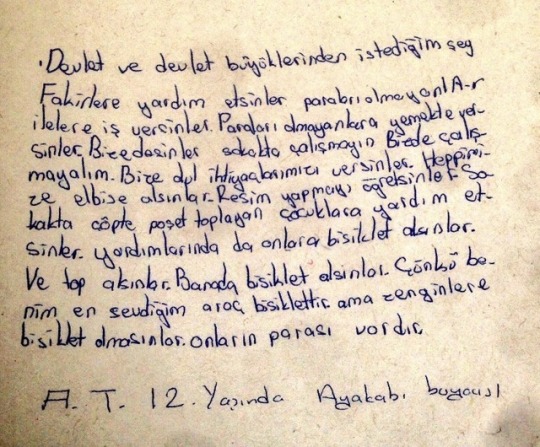 Devlet ve devlet büyüklerinden istediğim şey
Fakirlere yardım etsinler parabrı olmayanl A-r
ilelere iş versinler. Paraları olmayanlara yemekte ver-
sinler. Bizedesinler sokakta çalışmayın Bizde çalış-
mayalım. Bize dul ihtiyaçlarımızı versinler. Heppimi-
ze elbise alsınlar. Resim yapmayı öğretsinler. So-
kakta çöpte poşet toplayan çocuklara yardım et-
sinler. yardımlarında da onlara bisiklet alsınlar.
Ve top alsınlar. Banada bisiklet alsınlar. Çünkü be-
nim en sevdiğim araç bisiklettir. ama zenginlere
bisiklet almasınlar. onların parası vardır.
A. T. 12. Yaşında Ayakabı boyacısı